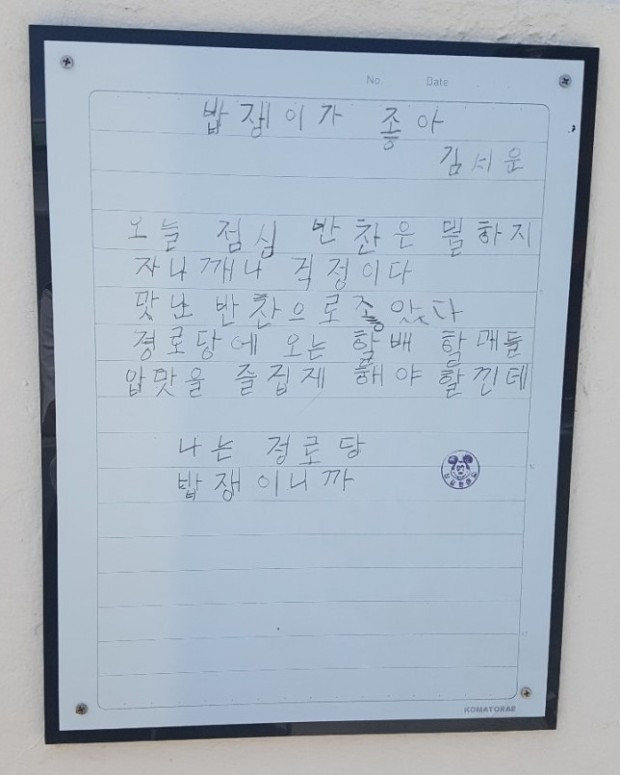 No. Date
밥쟁이가 좋아
김시운
오늘 점심 반찬은 뭘하지
자나깨나 걱정이다
맛난 반찬으로 좋았다
경로당에 오는 할배 할매들
입맛을 즐겁제 해야 할낀데
나는 경로당
밥쟁이니까
KOMATORAE